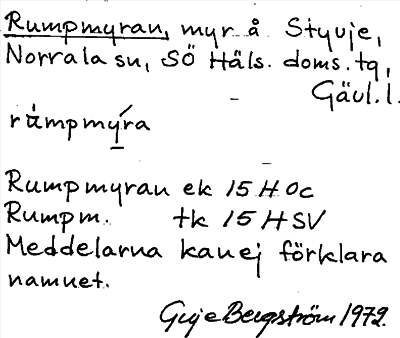 Rumpmyran, myr å Styvje,
Norrala sn, SÖ Häls. doms. tg,
Gävl. l.
rumpmýra
Rumpmyran ek 15 H 0c
Rumpm. tk 15 H SV
Meddelarna kan ej förklara
namnet.
Bergström 1972.